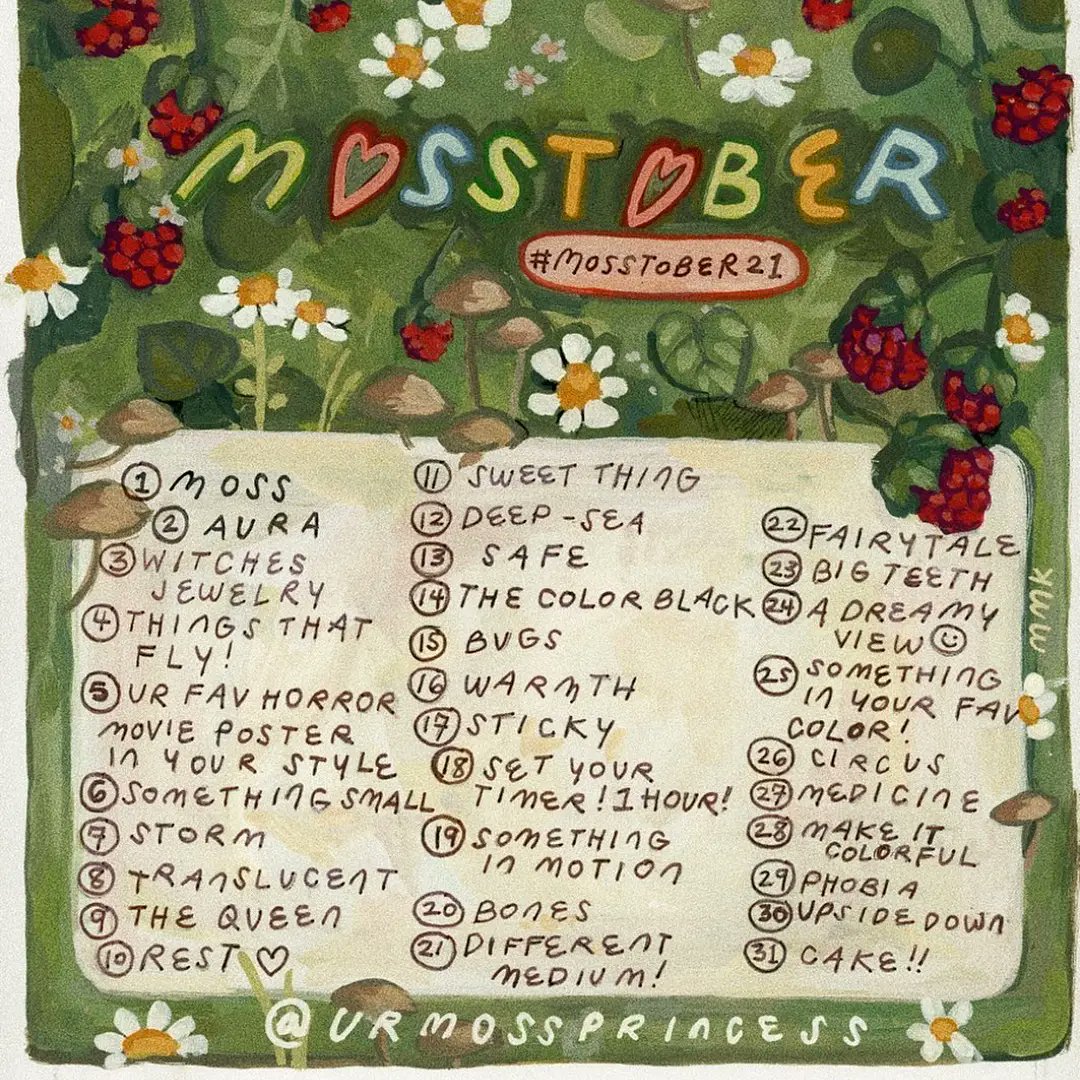 MOSSTOBER
#MOSSTOBER21
1 MOSS
2 AURA
3 WITCHES
JEWELRY
4 THINGS THAT
FLY!
5 UR FAV HORROR
MOVIE POSTER
IN YOUR STYLE
6 SOMETHING SMALL
7 STORM
8 TRANSLUCENT
9 THE QUEEN
10 REST ♡
11 SWEET THING
12 DEEP-SEA
13 SAFE
14 THE COLOR BLACK
15 BUGS
16 WARMTH
17 STICKY
18 SET YOUR
TIMER! 1 HOUR!
19 SOMETHING
IN MOTION
20 BONES
21 DIFFERENT
MEDIUM!
22 FAIRYTALE
23 BIG TEETH
24 A DREAMY
VIEW ☺
25 SOMETHING
IN YOUR FAV
COLOR!
26 CIRCUS
27 MEDICINE
28 MAKE IT
COLORFUL
29 PHOBIA
30 UPSIDE DOWN
31 CAKE!!
@URMOSSPRINCESS